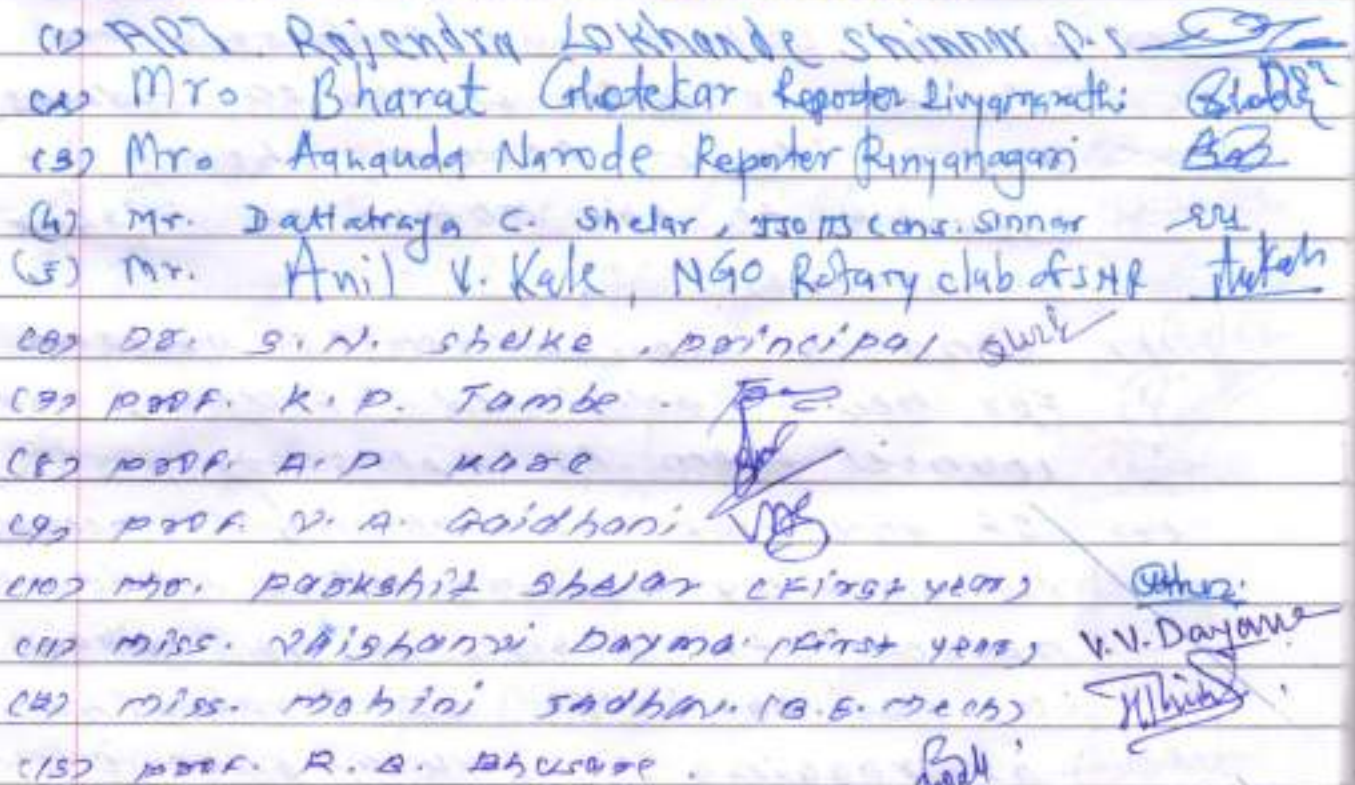 (1) API. Rajendra Lokhande Shinnar P.S
(2) Mr. Bharat Ghotekar Reporter Divyamarathi
(3) Mr. Narode Reporter Punyanagari
(4) Mr. Dattatraya C. Shelar, Cons. Sinnar
(5) Mr. Anil V. Kale, NGO Rotary club of SNR
(6) Dr. S. N. Shelke, principal
(7) prof. K. P. Tambe.
(8) prof. A. P. Kare
(9) prof. V. A. Gaidhani.
(10) Mr. Parkshit Shelar (First year)
(11) miss. Vaishanvi Dayma. (First year) V.V. Dayama
(12) miss. mohini Jadhav. (B.E. mech)
(13) prof. R. B. Bhusare.